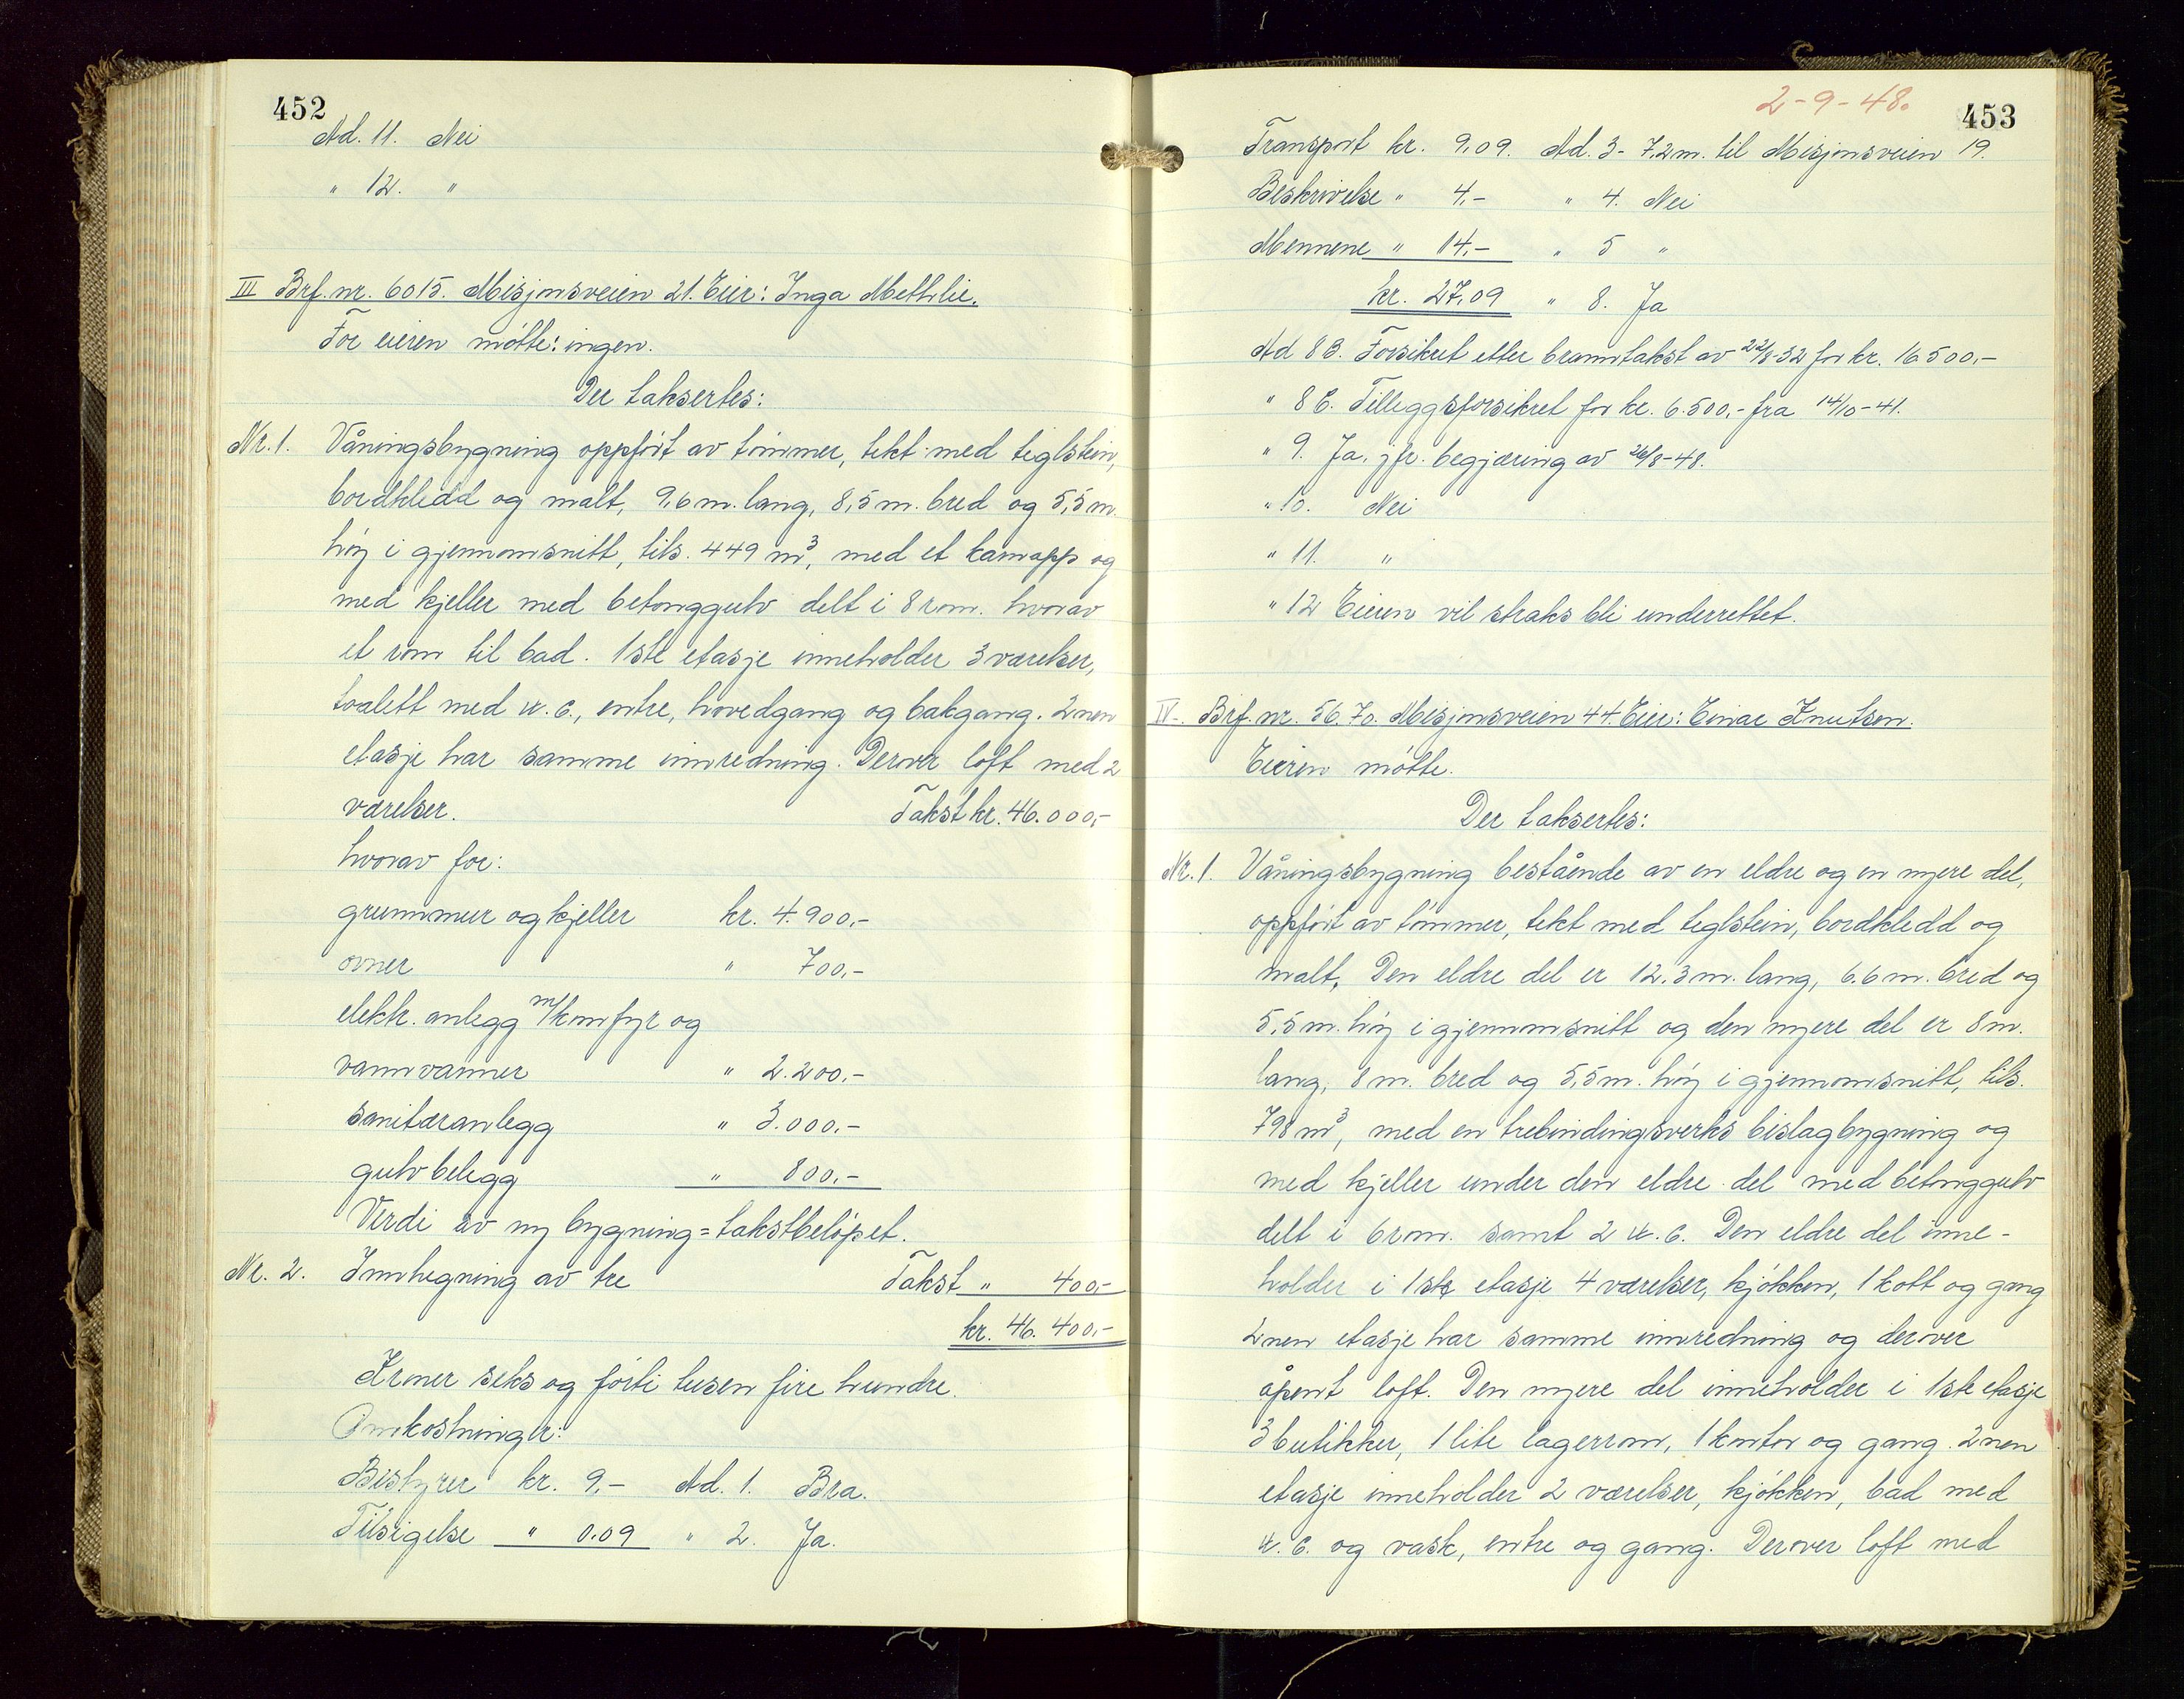 452
Ad. 11. Nei
" 12. "
III Brf. nr. 6015. Misjonsveien 21. Eier: Inga Methlie.
For eieren møtte: ingen.
Der taksertes:
Nr. 1. Våningsbygning oppført av tømmer, tekt med teglstein,
bordkledd og malt, 9,6 m. lang, 8,5 m. bred og 5,5 m.
høy i gjennomsnitt, tils. 449 m³, med et karnapp og
med kjeller med betonggulv delt i 8 rom. hvorav
et rom til bad. 1ste etasje inneholder 3 værelser,
toalett med w.c., entre, hovedgang og bakgang. 2nen
etasje har samme innredning. Derover loft med 2
værelser. Takst kr. 46.000,-
hvorav for:
grunnmur og kjeller kr. 4.900,-
ovner " 700,-
elektr. anlegg m/komfyr og
vannvarmer " 2.200,-
sanitæranlegg " 3.000.-
gulvbelegg " 800,-
Verdi av ny bygning = takstbeløpet.
Nr. 2. Innhegning av tre Takst " 400,-
kr. 46.400,-
Kroner seks og førti tusen fire hundre.
Omkostninger:
Bestyrer kr. 9,- Ad. 1. Bra.
Tilsigelse " 0.09 " 2. Ja.
2-9-48.
453
Transport kr. 9,09. Ad. 3- 7,2 m. til Misjonsveien 19.
Beskrivelse " 4,- " 4. Nei
Mennene " 14,- " 5 "
kr. 27,09 " 8. Ja
Ad 8 B. Forsikret etter branntakst av 22/8-32 for kr. 16500,-
" 8 C. Tilleggsforsikret for kr. 6.500,- fra 14/10-41.
" 9. Ja, jfr. begjæring av 26/8-48.
" 10. Nei
" 11. "
" 12 Eieren vil straks bli underrettet.
IV. Brf. nr. 56.70. Misjonsveien 44. Eier: Einar Knutsen.
Eieren møtte.
Der taksertes:
Nr. 1. Våningsbygning bestående av en eldre og en nyere del,
oppført av tømmer, tekt med teglstein, bordkledd og
malt, Den eldre del er 12.3 m. lang, 6.6 m. bred og
5,5 m. høy i gjennomsnitt og den nyere del er 8 m.
lang, 8 m. bred og 5,5 m. høy i gjennomsnitt, tils.
798 m³, med en trebindingsverks bislagbygning og
med kjeller under den eldre del med betonggulv
delt i 6 rom. samt 2 w.c. Den eldre del inne-
holder i 1ste etasje 4 værelser, kjøkken, 1 kott og gang
2nen etasje har samme innredning og derover
åpent loft. Den nyere del inneholder i 1ste etasje
3 butikker, 1 lite lagerrom, 1 kontor og gang. 2nen
etasje inneholder 2 værelser, kjøkken, bad med
w.c. og vask, entre og gang. Derover loft med